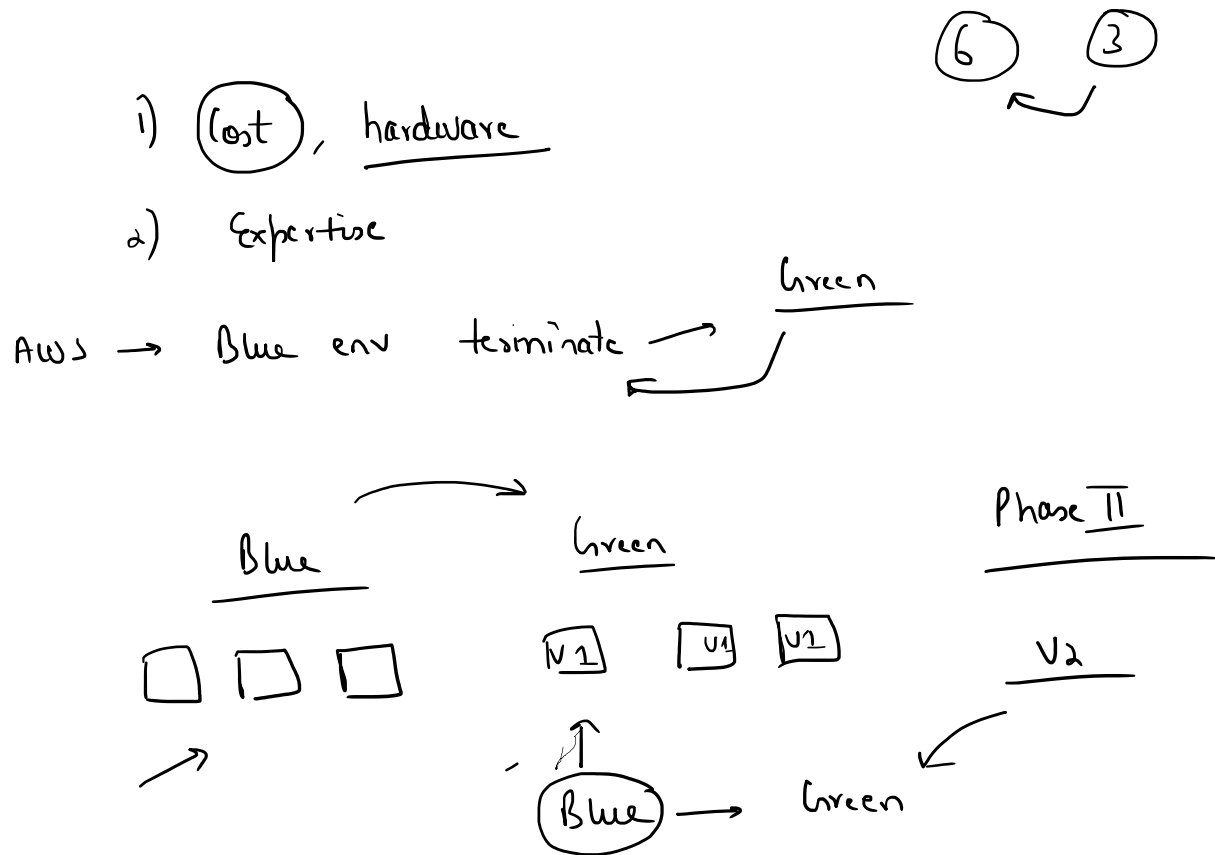 6 3
1) Cost, hardware
2) Expertise
Green
AWS → Blue env terminate
Phase II
Blue Green
V1 V1 V1 V2
Blue → Green